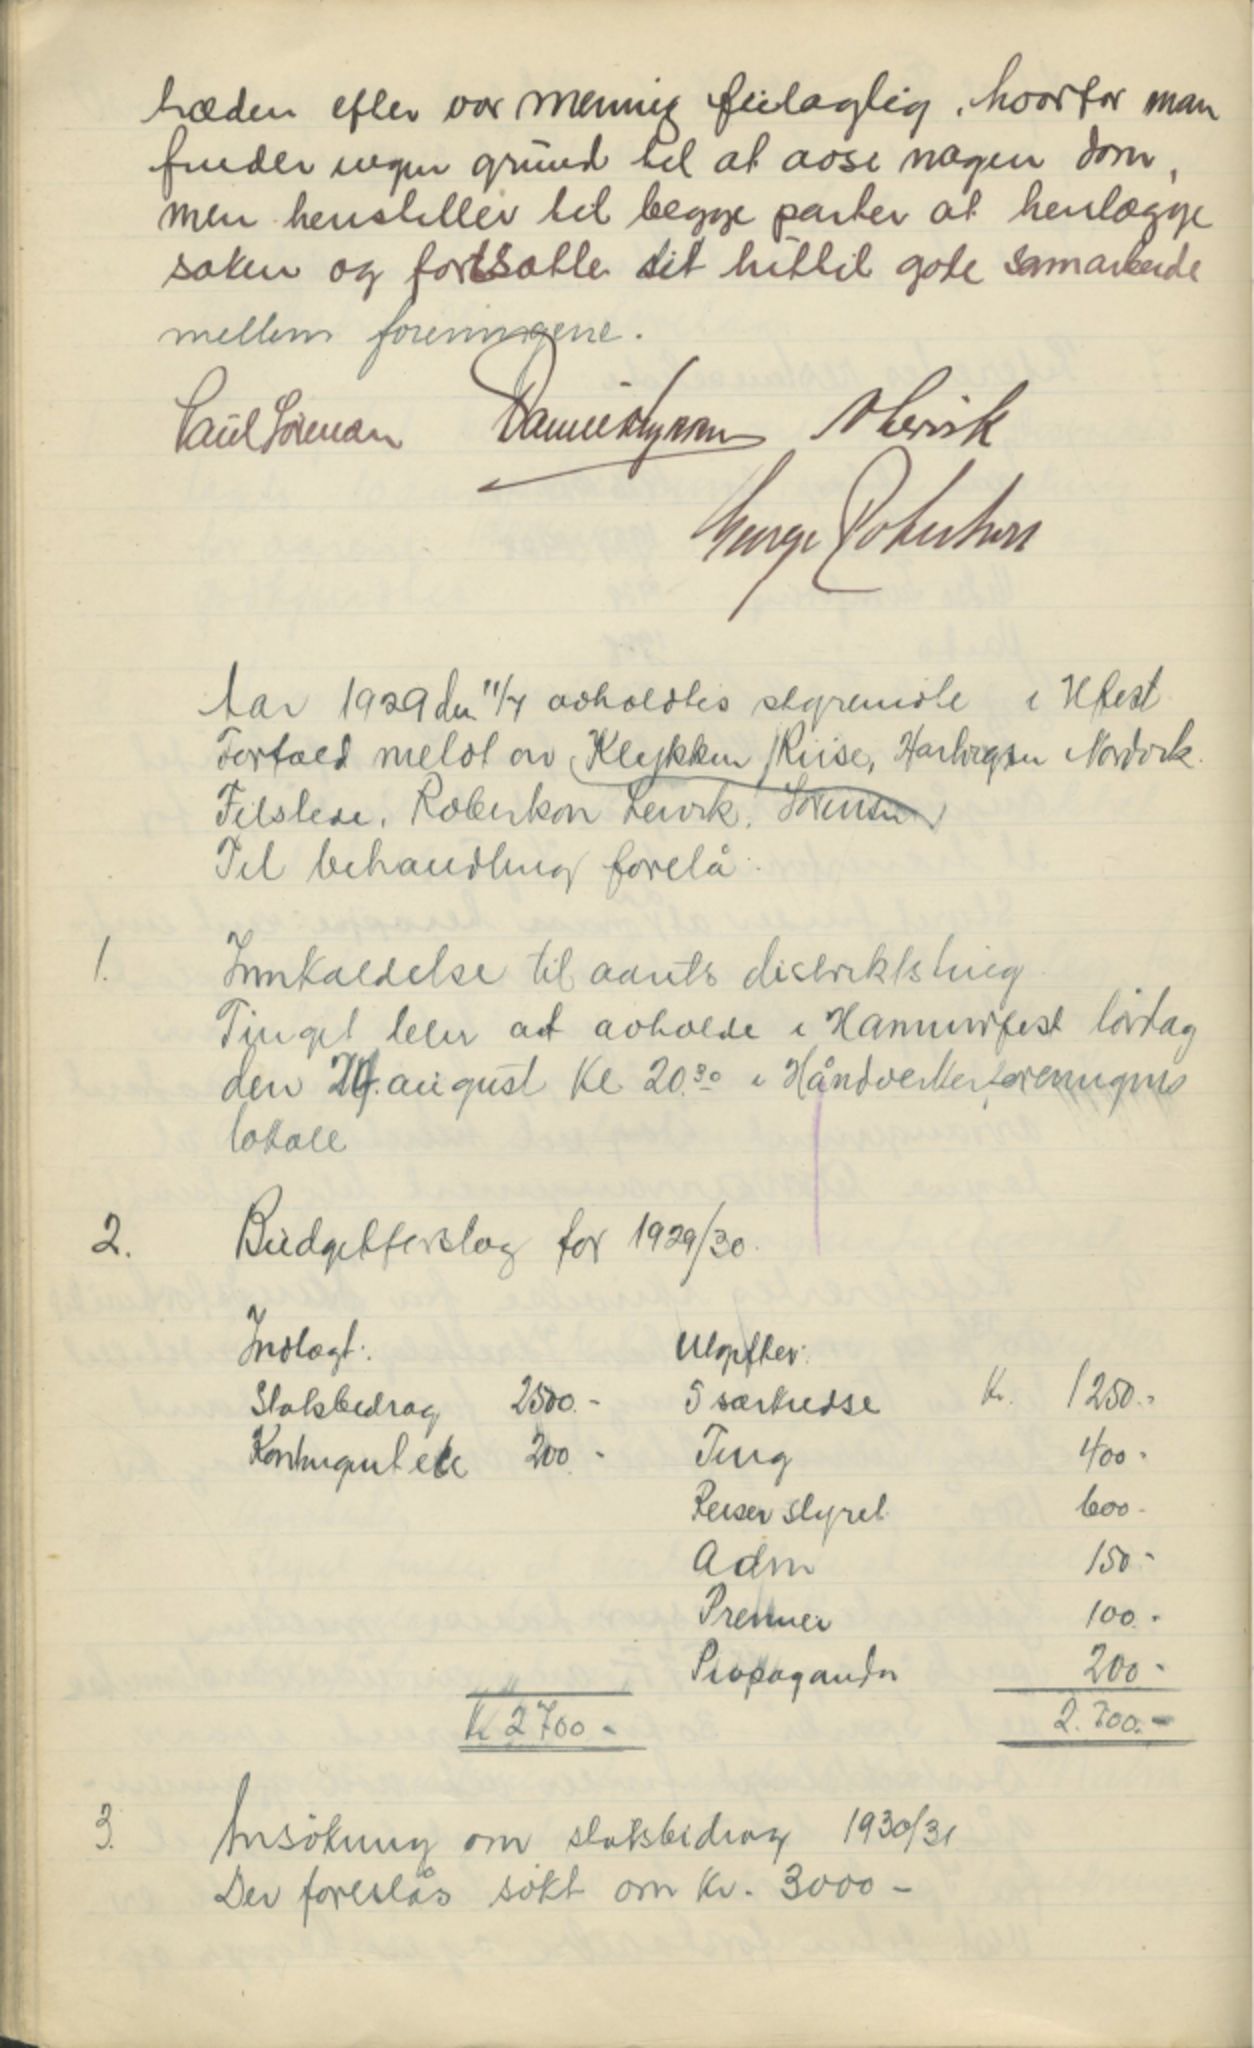 træden efter vor mening feilagtig, hvorfor man
finder ingen grund til at avsi nogen dom,
men henstiller til begge parter at henlægge
saken og fortsætte sit hittil gode samarbeide
mellem foreningene.
Paul Sörensen
George Robertson
Aar 1929 den 11/7 avholdtes styremöte i Hfest
Forfald meldt av Klykken, Riise, Hartvigsen Nordvik.
Tilstede, Robertson Lervik, Sörensen
Til behandling forelå:
1. Innkaldelse til aarets distriktsting
Tinget blir at avholde i Hammerfest lördag
den 24. august Kl 20.30 i Håndverkerforeningens
lokale
2. Budgetforslag for 1929/30.
Indtægt: Utgifter:
Statsbidrag 2500.- 5 særkredse Kr. 1250.-
Kontingent etc 200.- Ting 400.-
Reiser styret 600.-
Adm 150.-
Premier 100.-
Propaganda 200.-
Kr 2700.- 2.700.-
3. Ansökning om statsbidrag 1930/31
Der foreslås sökt om Kr. 3000.-